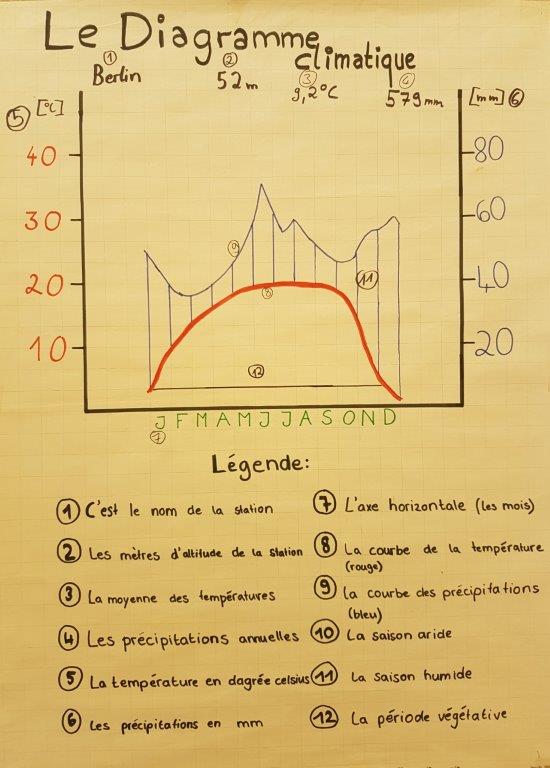 Le Diagramme
climatique
① ② ③ ④
Berlin 52m 9,2°C 579mm
⑤ [°C] [mm] ⑥
40 80
30 60
⑨
20 ⑧ ⑪ 40
10 20
⑫
J F M A M J J A S O N D
⑦
Légende:
① C'est le nom de la station
② Les mètres d'altitude de la station
③ La moyenne des températures
④ Les précipitations annuelles
⑤ La température en dagrée celsius
⑥ Les précipitations en mm
⑦ L'axe horizontale (les mois)
⑧ La courbe de la température
(rouge)
⑨ La courbe des précipitations
(bleu)
⑩ La saison aride
⑪ La saison humide
⑫ La période végétative